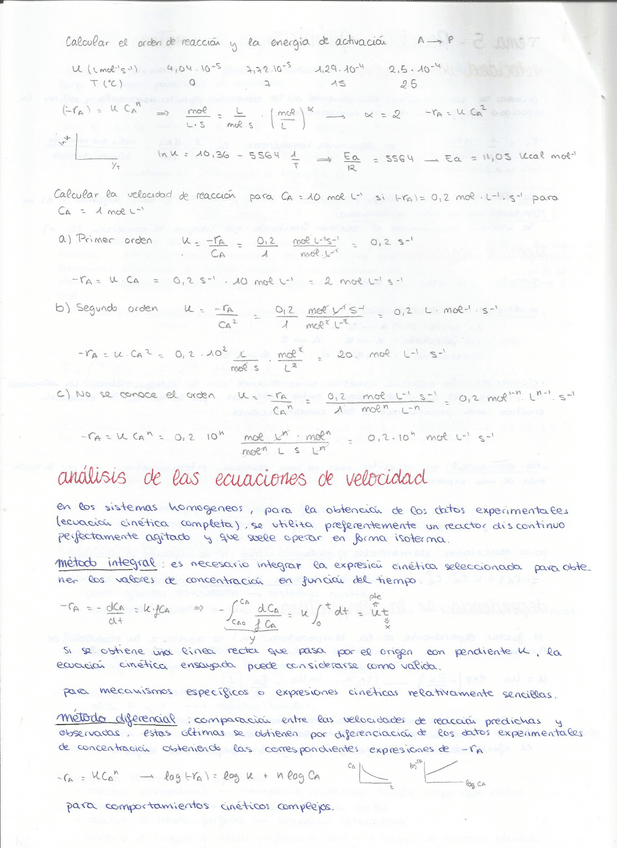 Calcular el orden de reacción y la energía de activación   A → P
K (L mol⁻¹ s⁻¹)   4,04·10⁻⁵   7,72·10⁻⁵   1,29·10⁻⁴   2,5·10⁻⁴
T (°C)   0   7   15   25
(-rA) = K CAⁿ ⇒ mol/L·s = L/mol·s · (mol/L)^α → α = 2   -rA = K CA²
ln K   1/T   ln K = 10,36 - 5564 1/T ⇒ Ea/R = 5564 → Ea = 11,05 Kcal mol⁻¹
Calcular la velocidad de reacción para CA = 10 mol L⁻¹ si (-rA) = 0,2 mol·L⁻¹·s⁻¹ para
CA = 1 mol L⁻¹
a) Primer orden   K = -rA/CA = 0,2/1 mol L⁻¹ s⁻¹/mol·L⁻¹ = 0,2 s⁻¹
-rA = K CA = 0,2 s⁻¹ · 10 mol L⁻¹ = 2 mol L⁻¹ s⁻¹
b) Segundo orden   K = -rA/CA² = 0,2/1 mol L⁻¹ s⁻¹/mol² L⁻² = 0,2 L·mol⁻¹·s⁻¹
-rA = K·CA² = 0,2·10² L/mol s · mol²/L² = 20 mol L⁻¹ s⁻¹
c) No se conoce el orden   K = -rA/CAⁿ = 0,2/1 mol L⁻¹ s⁻¹/molⁿ·L⁻ⁿ = 0,2 mol¹⁻ⁿ Lⁿ⁻¹·s⁻¹
-rA = K CAⁿ = 0,2 10ⁿ mol Lⁿ·molⁿ/molⁿ L s Lⁿ = 0,2·10ⁿ mol L⁻¹ s⁻¹
análisis de las ecuaciones de velocidad
en los sistemas homogeneos, para la obtención de los datos experimentales
(ecuación cinética completa), se utiliza preferentemente un reactor discontinuo
perfectamente agitado y que suele operar en forma isoterma.
método integral: es necesario integrar la expresión cinética seleccionada para obte-
ner los valores de concentración en función del tiempo.
-rA = - dCA/dt = K·fCA ⇒ -∫CA0 CA dCA/fCA = K ∫0 t dt = K t   y   pte   x
Si se obtiene una línea recta que pasa por el origen con pendiente K, la
ecuación cinética ensayada puede considerarse como válida.
para mecanismos específicos o expresiones cinéticas relativamente sencillas.
método diferencial: comparación entre las velocidades de reacción predichas y
observadas. Estas últimas se obtienen por diferenciación de los datos experimentales
de concentración obteniendo las correspondientes expresiones de -rA
-rA = KCAⁿ → log(-rA) = log K + n log CA   CA   t   log CA
para comportamientos cinéticos complejos.